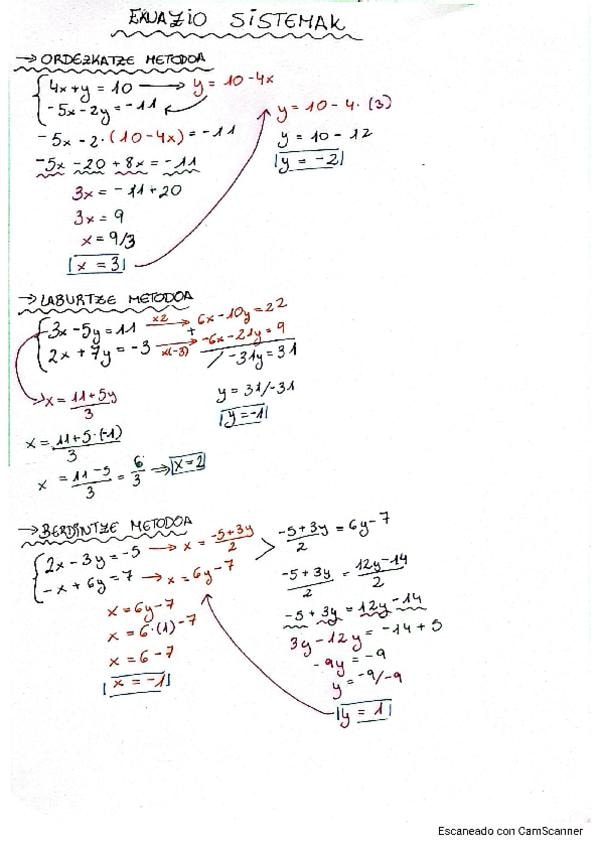 EKUAZIO SISTEMAK
→ ORDEZKATZE METODOA
4x+y = 10 → y = 10-4x
-5x-2y = -11
-5x-2·(10-4x) = -11
-5x -20 + 8x = -11
3x = -11+20
3x = 9
x = 9/3
x = 3
y = 10-4·(3)
y = 10-12
y = -2
→ LABURTZE METODOA
3x-5y = 11 x2 → 6x-10y = 22
2x+7y = -3 x(-3) → + -6x-21y = 9
/ -31y = 31
y = 31/-31
y = -1
→ x = 11+5y / 3
x = 11+5·(-1) / 3
x = 11-5 / 3 = 6/3 ⇒ x = 2
→ BERDINTZE METODOA
2x-3y = -5 → x = -5+3y / 2
-x+6y = 7 → x = 6y-7
x = 6y-7
x = 6·(1)-7
x = 6-7
x = -1
-5+3y / 2 = 6y-7
-5+3y / 2 = 12y-14 / 2
-5+3y = 12y-14
3y-12y = -14+5
-9y = -9
y = -9/-9
y = 1
Escaneado con CamScanner